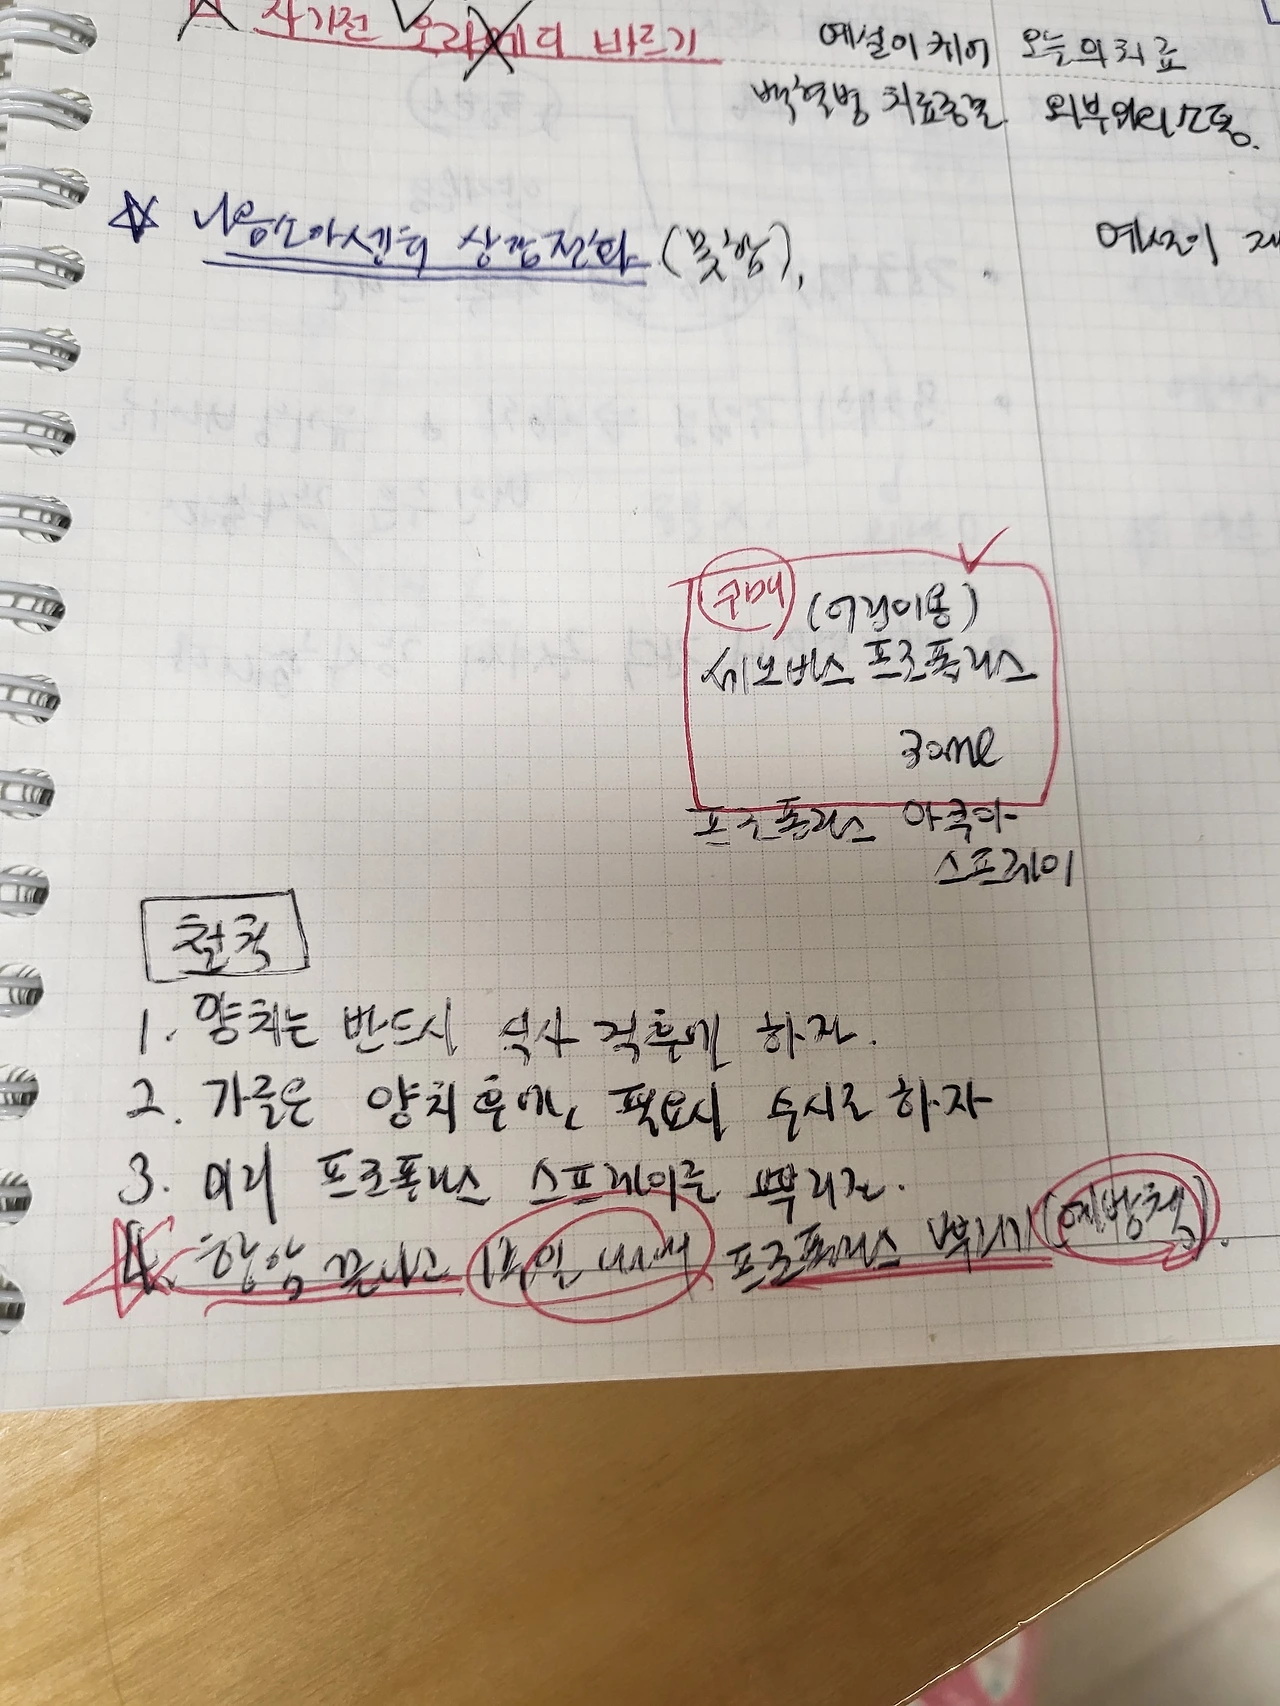 자기전 오라메디 바르기
예설이 케어 오늘의 치료
백혈병 치료종결 외부와의 소통.
마음소아센터 상담전화 (못함),
예설이
구매 (어린이용)
세노비스 프로폴리스
30ml
프로폴리스 아쿠아
스프레이
철칙
1. 양치는 반드시 식사 직후에 하자.
2. 가글은 양치 후에, 필요시 수시로 하자
3. 미리 프로폴리스 스프레이를 뿌리자.
4. 항암 끝나고 1주일 내내 프로폴리스 뿌리기 (예방책).